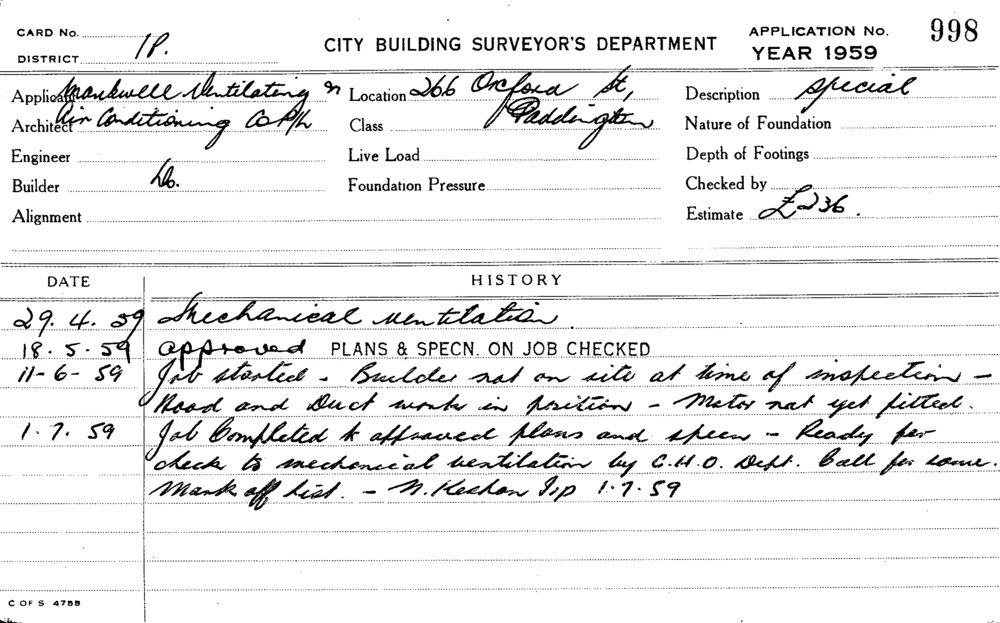 CARD No.
DISTRICT 1P.
CITY BUILDING SURVEYOR'S DEPARTMENT
APPLICATION No. 998
YEAR 1959
Applicant Markwell Ventilating &
Architect Air Conditioning Co P/L
Engineer
Builder Do.
Alignment
Location 266 Oxford St,
Class Paddington
Live Load
Foundation Pressure
Description Special
Nature of Foundation
Depth of Footings
Checked by
Estimate £236.
DATE HISTORY
29. 4. 59 Mechanical ventilation.
18. 5. 59 approved PLANS & SPECN. ON JOB CHECKED
11-6-59 Job started - Builder not on site at time of inspection -
Hood and Duct work in position - Motor not yet fitted.
1. 7. 59 Job Completed to approved plans and specn - Ready for
check to mechanical ventilation by C.H.O. Dept. Call for same.
Mark off list. - N. 1.7.59
C OF S 4755